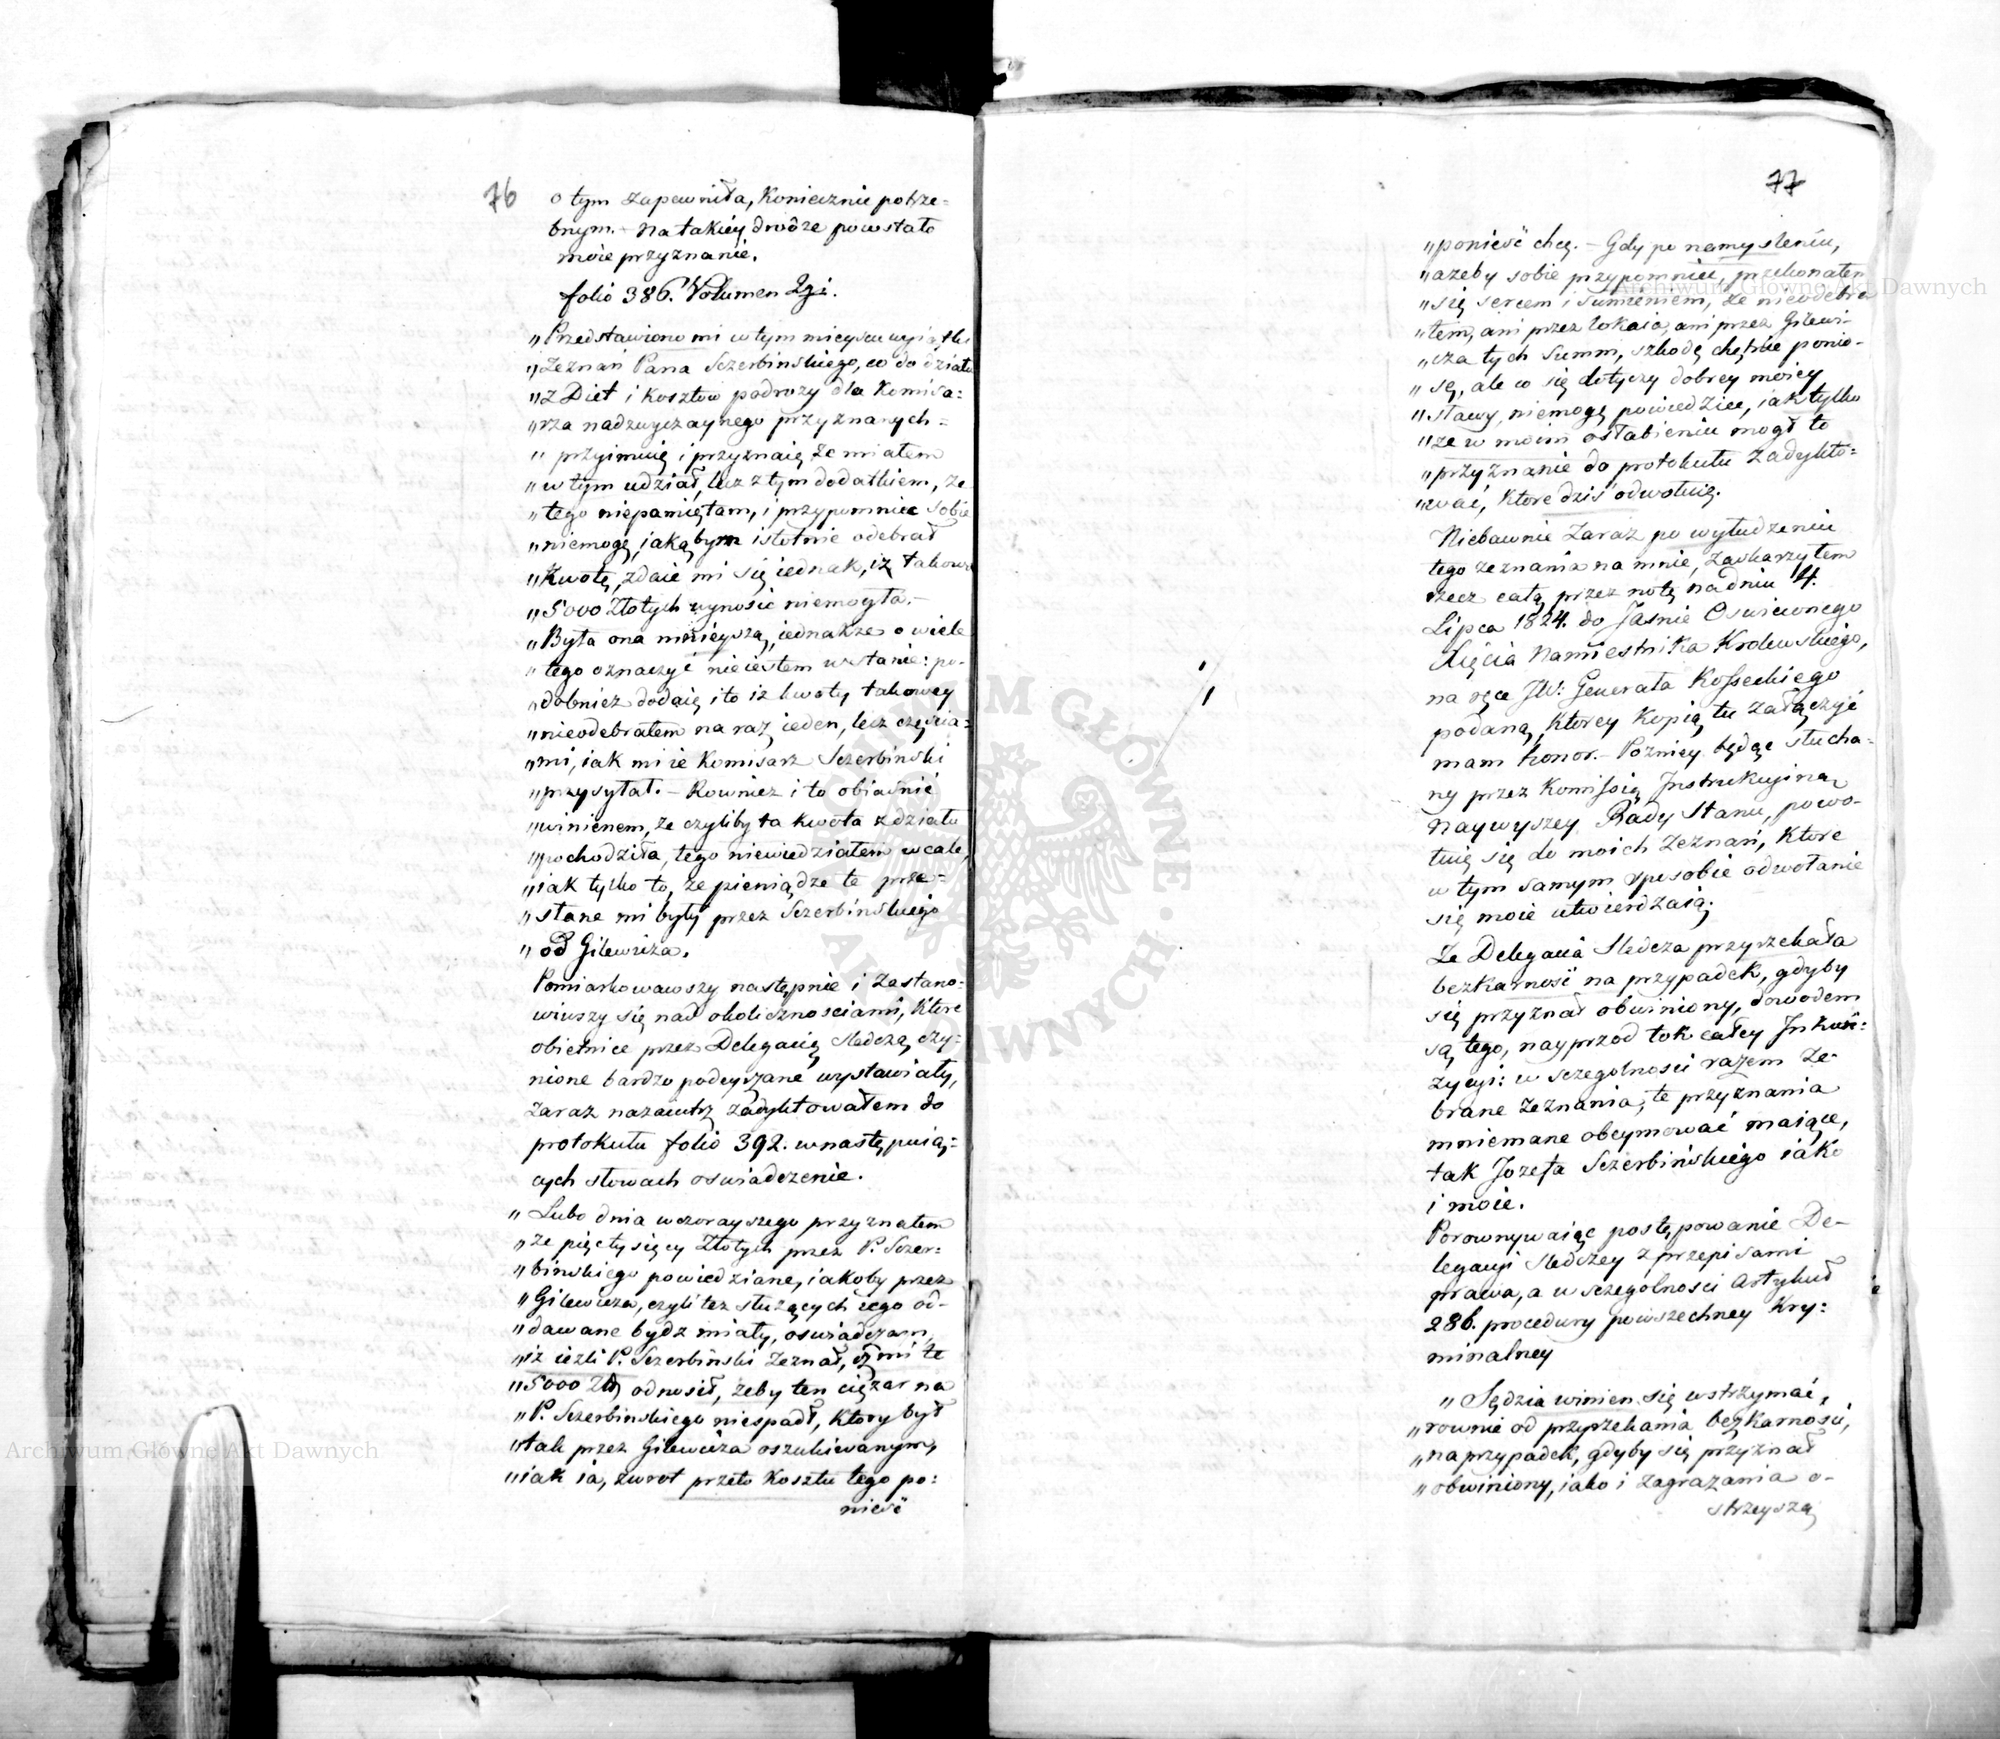 76
o tym zapewniła, koniecznie potrze=
bnym. – Na takiéy drodze powstało
moie przyznanie.
folio 386. Volumen 2gi.
„Przedstawiono mi w tym mieyscu wyiątki
„Zeznań Pana Sczerbińskiego, co do działu
„z Diet i kosztów podrozy dla Komisa=
„rza nadzwyczaynego przyznanych =
„przyimuię i przyznaię ze miałem
„w tym udział, lecz z tym dodatkiem, ze
„tego niepamiętam, i przypomniec sobie
„niemogę, iaką bym istotnie odebrał
„Kwotę, zdaie mi się iednak, iz takowa
„5000 Złotych wynosic niemogła. –
„Była ona mnieyszą, iednakze o wiele
„tego oznaczyć nieiestem wstanie: po-
„dobniez dodaię i to iz kwoty takowey
„nieodebrałem na raz ieden, lecz częścia=
„mi, iak mi ie Komisarz Sczerbinski
„przysyłał. – Rowniez i to obiaśnić
„winienem, ze czyliby ta kwota z działu
„pochodziła, tego niewiedziałem wcale,
„iak tylko to, ze pieniądze te prze=
„słane mi były przez Sczerbinskiego
„od Gilewicza.
Pomiarkowawszy następnie i zastano=
wiwszy się nad okolicznosciami, które
obietnice przez Delegacię sledczą czy=
nione bardzo podeyrzane wystawiały,
zaraz nazaiutrz zadyktowałem do
protokułu folio 392. w następuią=
cych słowach oswiadczenie.
„Lubo dnia wczorayszego przyznałem
„ze pięc tysięcy Złotych przez P. Sczer=
„binskiego powiedziane, iakoby przez
„Gilewicza, czyli tez słuzących iego od-
„dawane bydz miały, oswiadczam,
„iz iezli P. Sczerbinski zeznał, iz mi te
„5000 Zł odnosił, zeby ten cięzar na
„P. Sczerbinskiego niespadł, ktory był
„tak przez Gilewicza oszukiwanym,
„iak ia, zwrot przeto kosztu tego po=
niesć
77
„ponieść chcę. – Gdy po namysleniu,
„azeby sobie przypomniec, przekonałem
„się sercem i sumieniem, ze nieodebra
„łem, ani przez lokaia, ani przez Gilewi-
„cza tych summ, szkodę chętnie ponio-
„sę, ale co się dotyczy dobrey moiey
„sławy, niemogę powiedziec, iak tylko
„ze w moim osłabieniu mogł to
„przyznanie do protokułu zadykto=
„wać, ktore dziś odwołuię.
Niebawnie zaraz po wyłudzeniu
tego zeznania na mnie, zaskarzyłem
rzecz całą przez notę na dniu 4.
Lipca 1824. do Jaśnie Oswieconego
Xięcia Namiestnika Krolewskiego,
na ręce JW: Generała Kosseckiego
podaną, ktorey kopią tu załączyć
mam honor. – Pozniey będąc słucha-
ny przez Komissią Instrukcyiną
Naywyzszey Rady Stanu, powo-
łuię się do moich zeznań, ktore
w tym samym sposobie odwołanie
się moie utwierdzaią;
Ze Delegacia sledcza przyrzekała
bezkarność na przypadek, gdyby
się przyznał obwiniony, dowodem
są tego, nayprzod tok całey Inkwi=
zycyi: w sczegolnosci razem ze-
brane zeznania, te przyznania
mniemane obeymować maiące,
tak Jozefa Sczerbińskiego iako
i moie.
Porownywaiąc postępowanie De-
legacyi sledczey z przepisami
prawa, a w sczegolnosci artykuł
286. procedury powszechney Kry=
minalney
„Sędzia winien się wstrzymać,
„rownie od przyrzekania bezkarności,
„na przypadek, gdyby się przyznał
„obwiniony, iako i zagrazania o-
strzeyszą
Archiwum Główne Akt Dawnych
Archiwum Główne Akt Dawnych
ARCHIWUM GŁÓWNE AKT DAWNYCH